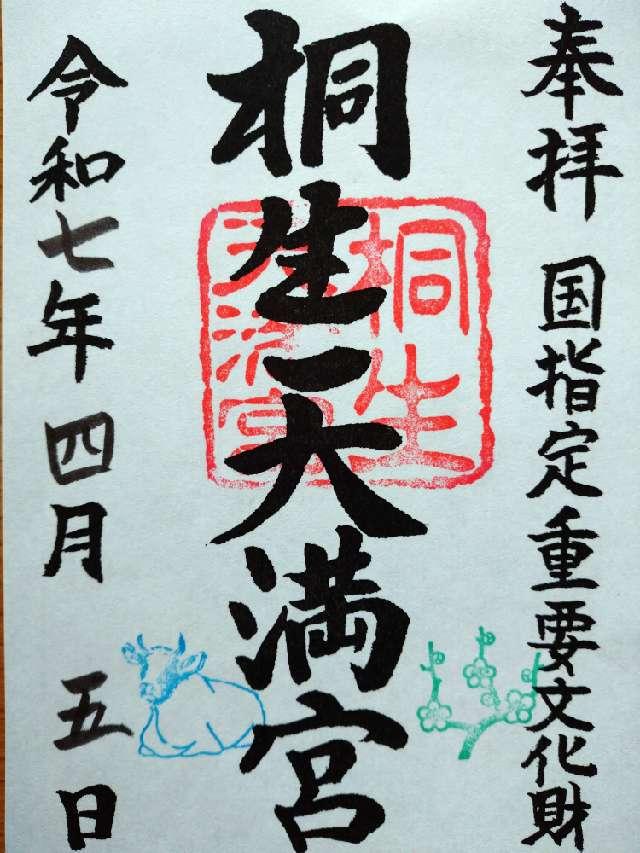 奉拝 国指定重要文化財
桐生天満宮
桐生
天満宮
令和七年 四月 五日